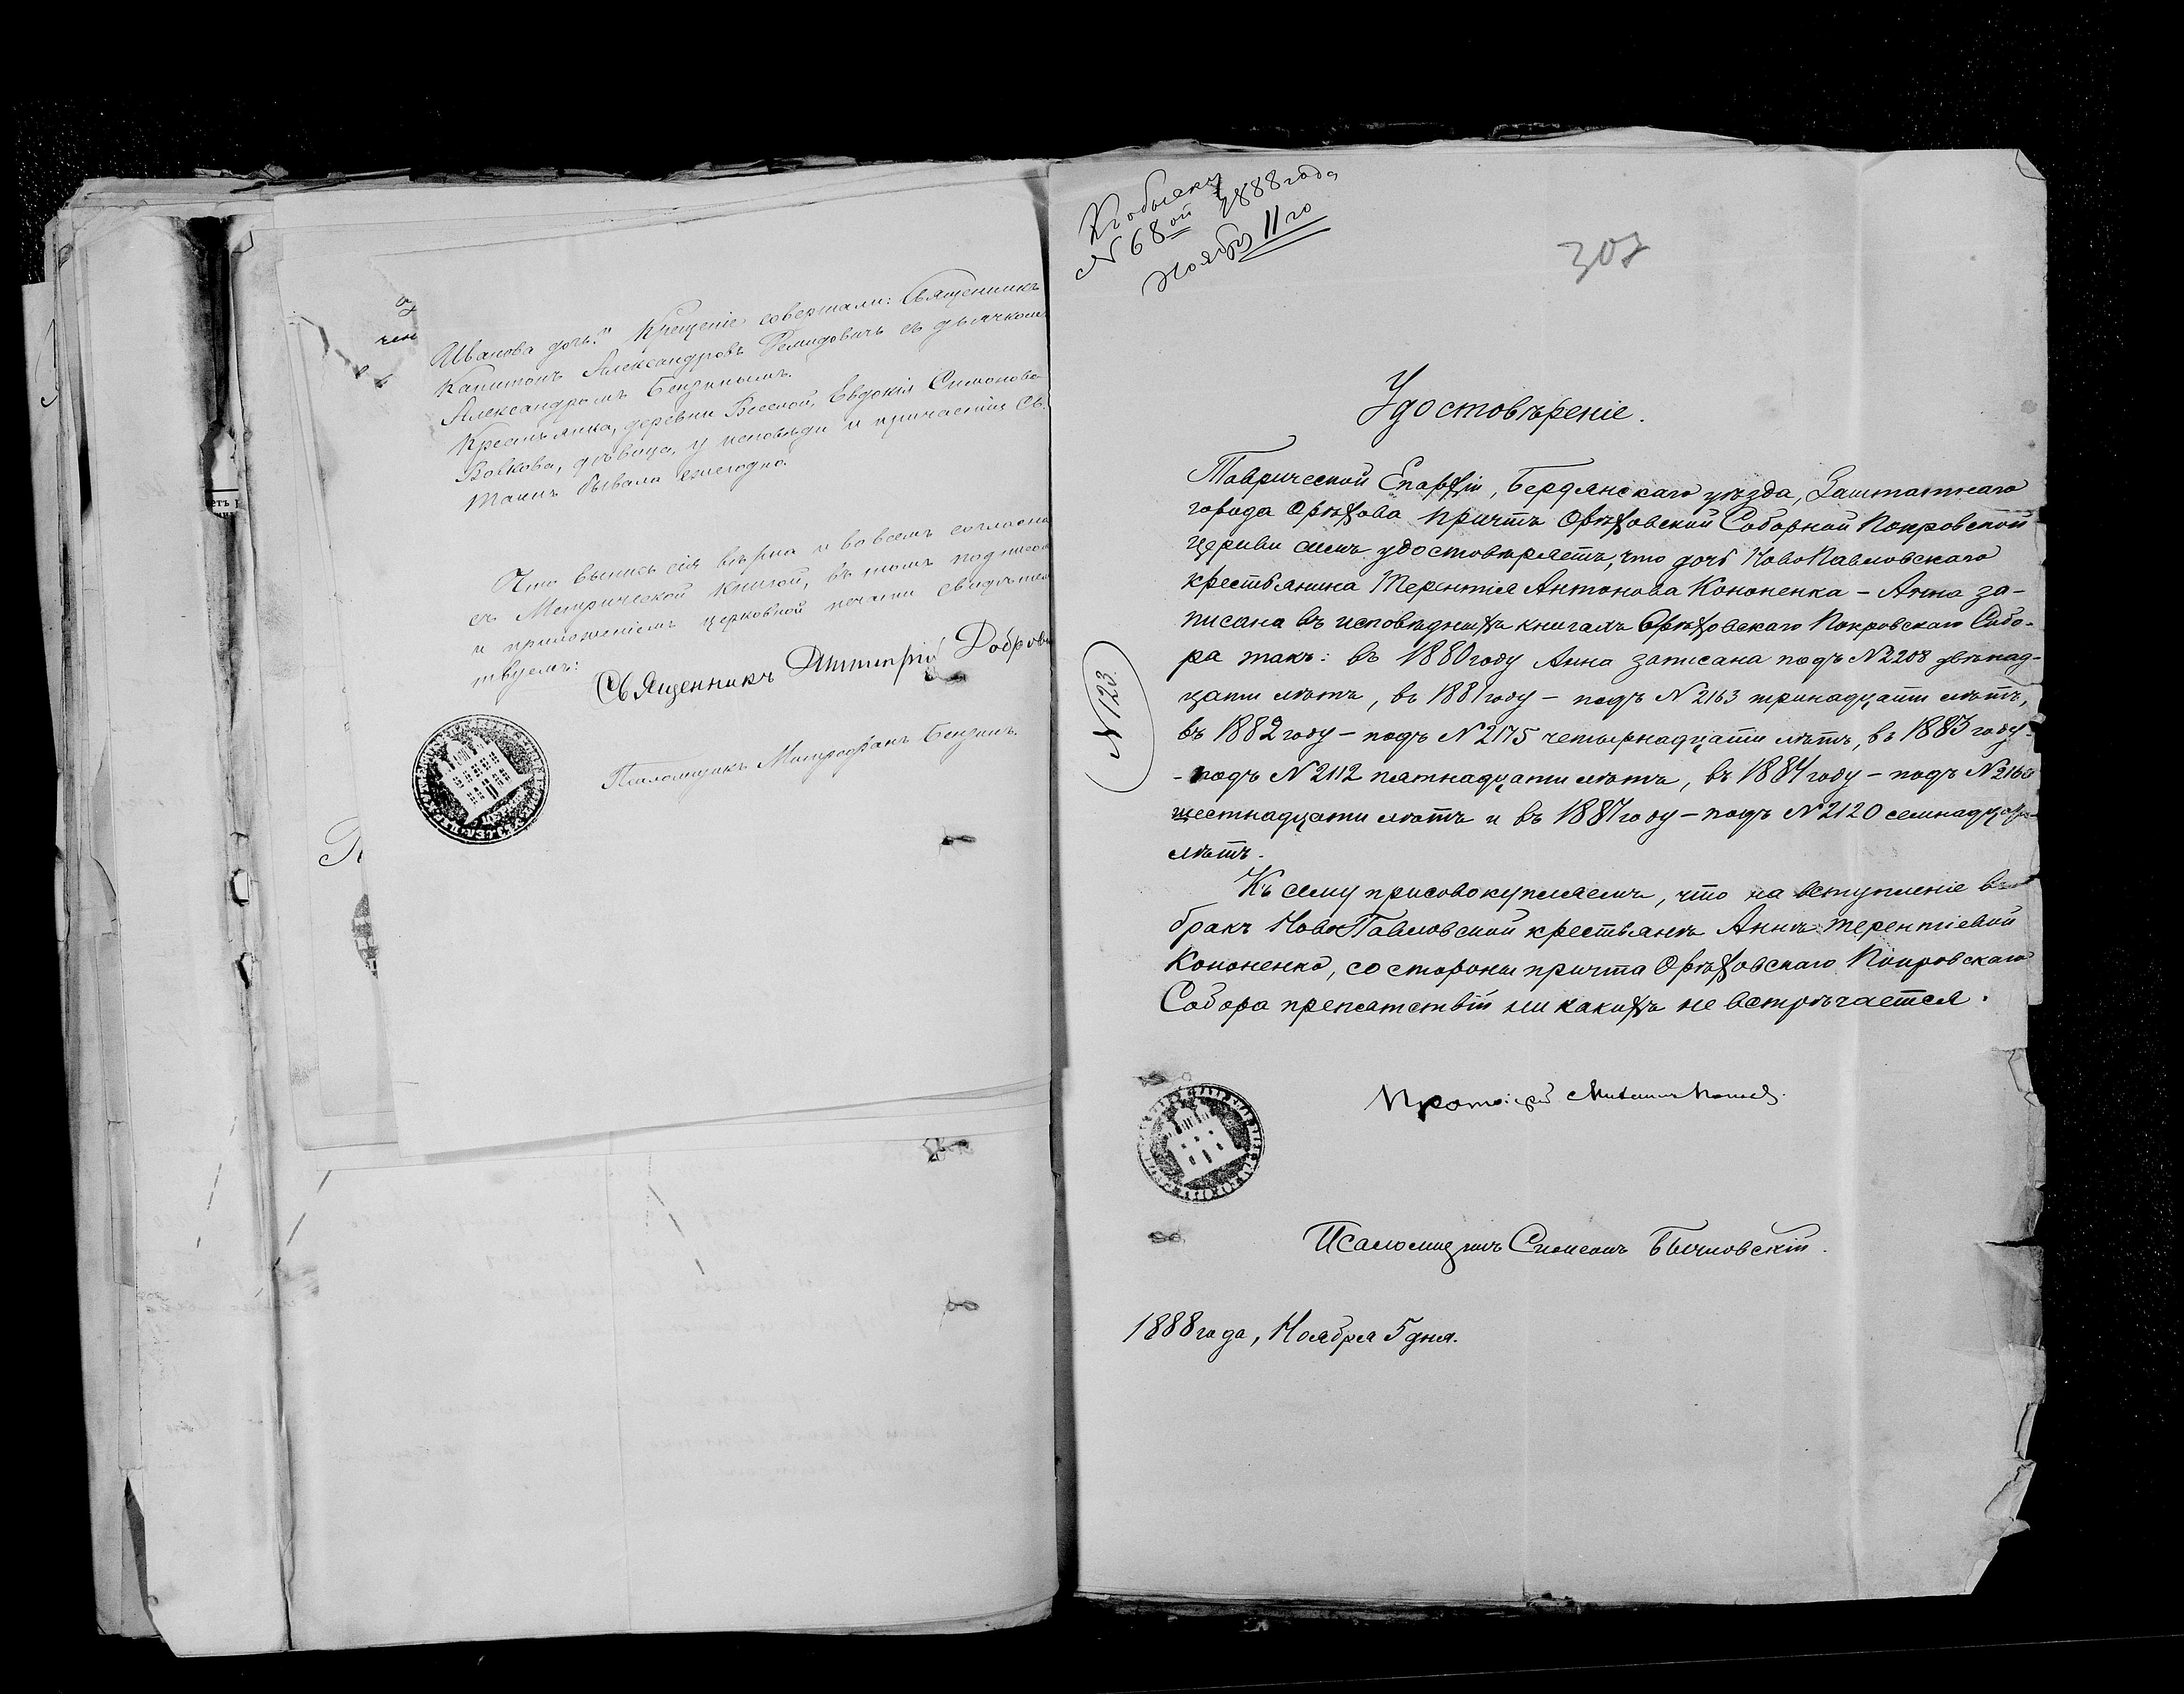 Иванова дочь." Крещеніе совершали: Священникъ
Капитонъ Александровъ Демидовичъ съ дьячкомъ
Александромъ Бензинымъ.
Крестьянка, деревни Веселой, Евдокія Симонова
Волкова, дѣвица, у исповѣди и причастія Св.
Таинъ бывала ежегодно.
Что выпись сія вѣрна и во всемъ согласна
съ Метрической книгой, въ томъ подписомъ
и приложеніемъ церковной печати свидѣтель
твуемъ:
Священникъ Димитрій Добров
Псаломщикъ Митрофанъ Бензинъ.
Къ обыску
N 68ой 1888 года
Ноября 11го
307
Удостовѣреніе.
Таврической Епархіи, Бердянскаго уѣзда, Заштатнаго
города Орѣхова причтъ Орѣховской Соборной Покровской
Церкви симъ удостовѣряетъ, что дочь НовоПавловскаго
крестьянина Терентія Антонова Кононенка – Анна за-
писана въ исповѣдныхъ книгахъ Орѣховскаго Покровскаго Собо-
ра такъ: въ 1880 году Анна записана подъ N 2208 двѣнад-
цати лѣтъ, въ 1881 году – подъ N 2163 тринадцати лѣтъ,
въ 1882 году – подъ N 2175 четырнадцати лѣтъ, въ 1883 году -
- подъ N 2112 пятнадцати лѣтъ, въ 1884 году – подъ N 2160
шестнадцати лѣтъ и въ 1887 году – подъ N 2120 семнадцати
лѣтъ.
Къ сему присовокупляемъ, что на вступленіе въ
бракъ НовоПавловской крестьянкѣ Аннѣ Терентіевой
Кононенко, со стороны причта Орѣховскаго Покровскаго
Собора препятствій ни какихъ не встрѣчается.
N 123.
Протоіерей
Псаломщикъ Симеонъ Бычковскій.
1888 года, Ноября 5 дня.